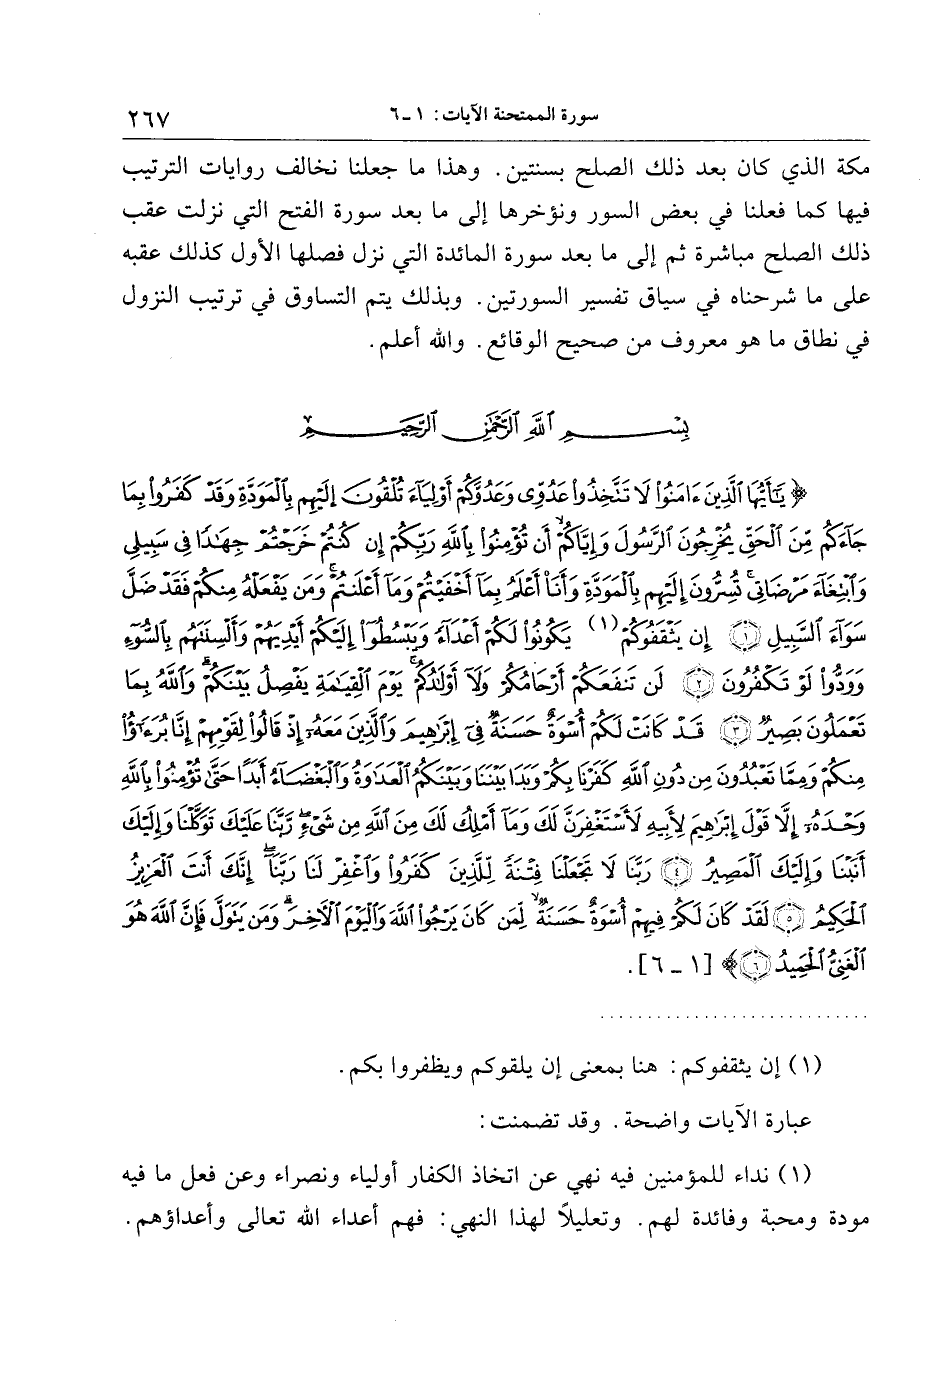 سورة الممتحنة الآيات: ١ ـ ٦ ٢٦٧
مكة الذي كان بعد ذلك الصلح بسنتين. وهذا ما جعلنا نخالف روايات الترتيب
فيها كما فعلنا في بعض السور ونؤخرها إلى ما بعد سورة الفتح التي نزلت عقب
ذلك الصلح مباشرة ثم إلى ما بعد سورة المائدة التي نزل فصلها الأول كذلك عقبه
على ما شرحناه في سياق تفسير السورتين. وبذلك يتم التساوق في ترتيب النزول
في نطاق ما هو معروف من صحيح الوقائع. والله أعلم.
بِسْمِ ٱللَّهِ ٱلرَّحْمَٰنِ ٱلرَّحِيمِ
﴿ يَٰٓأَيُّهَا ٱلَّذِينَ ءَامَنُوا۟ لَا تَتَّخِذُوا۟ عَدُوِّى وَعَدُوَّكُمْ أَوْلِيَآءَ تُلْقُونَ إِلَيْهِم بِٱلْمَوَدَّةِ وَقَدْ كَفَرُوا۟ بِمَا
جَآءَكُم مِّنَ ٱلْحَقِّ يُخْرِجُونَ ٱلرَّسُولَ وَإِيَّاكُمْ ۙ أَن تُؤْمِنُوا۟ بِٱللَّهِ رَبِّكُمْ إِن كُنتُمْ خَرَجْتُمْ جِهَٰدًا فِى سَبِيلِى
وَٱبْتِغَآءَ مَرْضَاتِى ۚ تُسِرُّونَ إِلَيْهِم بِٱلْمَوَدَّةِ وَأَنَا۠ أَعْلَمُ بِمَآ أَخْفَيْتُمْ وَمَآ أَعْلَنتُمْ ۚ وَمَن يَفْعَلْهُ مِنكُمْ فَقَدْ ضَلَّ
سَوَآءَ ٱلسَّبِيلِ ﴿١﴾ إِن يَثْقَفُوكُمْ (١) يَكُونُوا۟ لَكُمْ أَعْدَآءً وَيَبْسُطُوٓا۟ إِلَيْكُمْ أَيْدِيَهُمْ وَأَلْسِنَتَهُم بِٱلسُّوٓءِ
وَوَدُّوا۟ لَوْ تَكْفُرُونَ ﴿٢﴾ لَن تَنفَعَكُمْ أَرْحَامُكُمْ وَلَآ أَوْلَٰدُكُمْ ۚ يَوْمَ ٱلْقِيَٰمَةِ يَفْصِلُ بَيْنَكُمْ ۚ وَٱللَّهُ بِمَا
تَعْمَلُونَ بَصِيرٌ ﴿٣﴾ قَدْ كَانَتْ لَكُمْ أُسْوَةٌ حَسَنَةٌ فِىٓ إِبْرَٰهِيمَ وَٱلَّذِينَ مَعَهُۥٓ إِذْ قَالُوا۟ لِقَوْمِهِمْ إِنَّا بُرَءَٰٓؤُا۟
مِنكُمْ وَمِمَّا تَعْبُدُونَ مِن دُونِ ٱللَّهِ كَفَرْنَا بِكُمْ وَبَدَا بَيْنَنَا وَبَيْنَكُمُ ٱلْعَدَٰوَةُ وَٱلْبَغْضَآءُ أَبَدًا حَتَّىٰ تُؤْمِنُوا۟ بِٱللَّهِ
وَحْدَهُۥٓ إِلَّا قَوْلَ إِبْرَٰهِيمَ لِأَبِيهِ لَأَسْتَغْفِرَنَّ لَكَ وَمَآ أَمْلِكُ لَكَ مِنَ ٱللَّهِ مِن شَىْءٍ ۖ رَّبَّنَا عَلَيْكَ تَوَكَّلْنَا وَإِلَيْكَ
أَنَبْنَا وَإِلَيْكَ ٱلْمَصِيرُ ﴿٤﴾ رَبَّنَا لَا تَجْعَلْنَا فِتْنَةً لِّلَّذِينَ كَفَرُوا۟ وَٱغْفِرْ لَنَا رَبَّنَآ ۖ إِنَّكَ أَنتَ ٱلْعَزِيزُ
ٱلْحَكِيمُ ﴿٥﴾ لَقَدْ كَانَ لَكُمْ فِيهِمْ أُسْوَةٌ حَسَنَةٌ لِّمَن كَانَ يَرْجُوا۟ ٱللَّهَ وَٱلْيَوْمَ ٱلْءَاخِرَ ۚ وَمَن يَتَوَلَّ فَإِنَّ ٱللَّهَ هُوَ
ٱلْغَنِىُّ ٱلْحَمِيدُ ﴿٦﴾ ﴾ [١ ـ ٦].
(١) إن يثقفوكم: هنا بمعنى إن يلقوكم ويظفروا بكم.
عبارة الآيات واضحة. وقد تضمنت:
(١) نداء للمؤمنين فيه نهي عن اتخاذ الكفار أولياء ونصراء وعن فعل ما فيه
مودة ومحبة وفائدة لهم. وتعليلاً لهذا النهي: فهم أعداء الله تعالى وأعداؤهم.